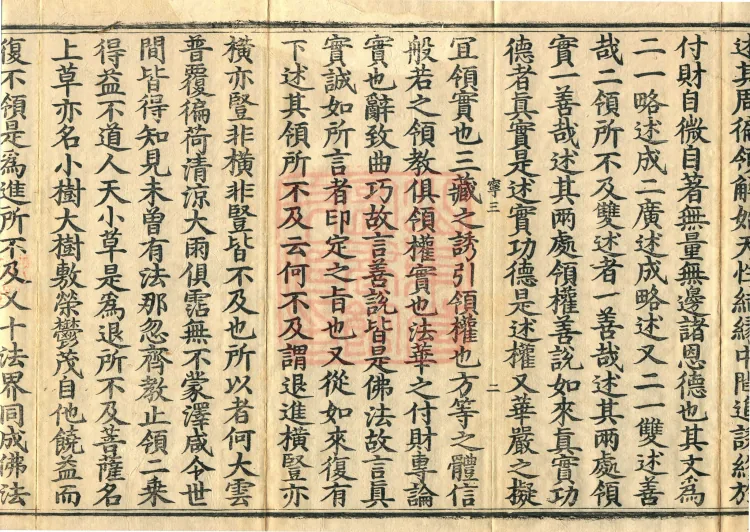 述其用後領解始天性結緣中間追誘終於
付財自微自著無量無邊諸恩德也其文爲
二一略述成二廣述成略述又二一雙述善
哉二領所不及雙述者一善哉述其兩處領
實一善哉述其兩處領權善說如來眞實功
德者眞實是述實功德是述權又華嚴之擬
寧三
二
宜領實也三藏之誘引領權也方等之體信
般若之領教俱領權實也法華之付財專論
實也辭致曲巧故言善說皆是佛法故言眞
實誠如所言者印定之旨也又從如來復有
下述其領所不及云何不及謂退進橫豎亦
橫亦豎非橫非豎皆不及也所以者何大雲
普覆徧荷清涼大雨俱霑無不蒙澤咸令世
間皆得知見未曾有法那忽齊教止領二乘
得益不道人天小草是爲退所不及菩薩名
上草亦名小樹大樹敷榮鬱茂自他饒益而
復不領是爲進所不及又十法界同成佛法